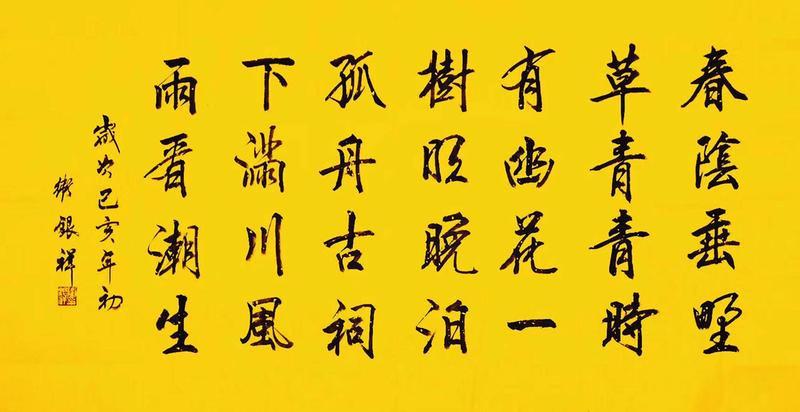 春陰垂野
草青青時
有幽花一
樹明晚泊
孤舟古祠
下滿川風
雨看潮生
歲次己亥年初
銀祥